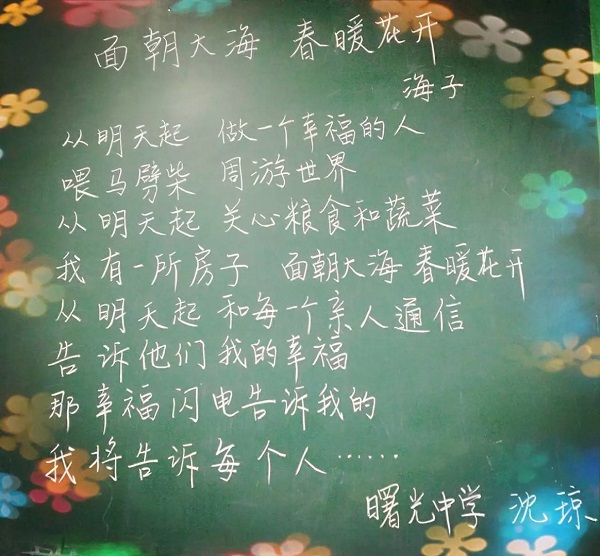 面朝大海 春暖花开
海子
从明天起 做一个幸福的人
喂马劈柴 周游世界
从明天起 关心粮食和蔬菜
我有一所房子 面朝大海 春暖花开
从明天起 和每一个亲人通信
告诉他们我的幸福
那幸福闪电告诉我的
我将告诉每个人……
曙光中学 沈琼